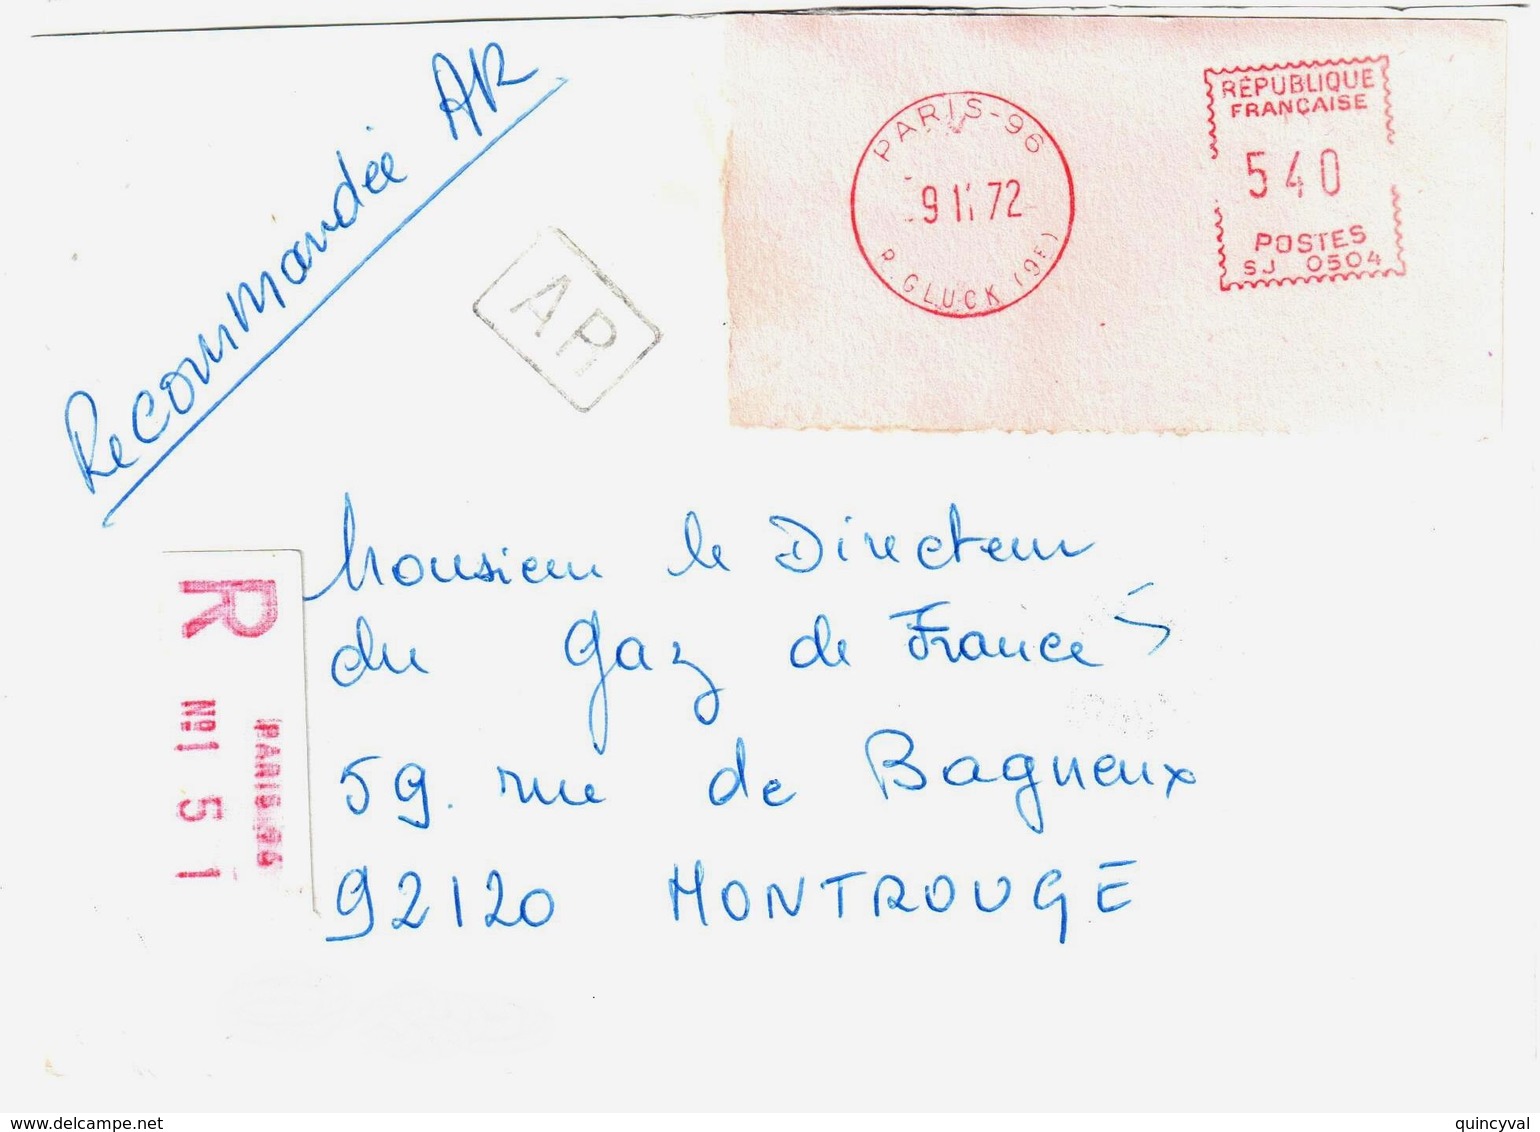 Recommandée AR
PARIS-96
9 11 72
R. GLUCK (9E)
RÉPUBLIQUE
FRANÇAISE
540
POSTES
SJ 0504
AR
Monsieur le Directeur
du Gaz de France
59. rue de Bagneux
92120 MONTROUGE
R
PARIS-96
Nº 151
www.delcampe.net
quincyval